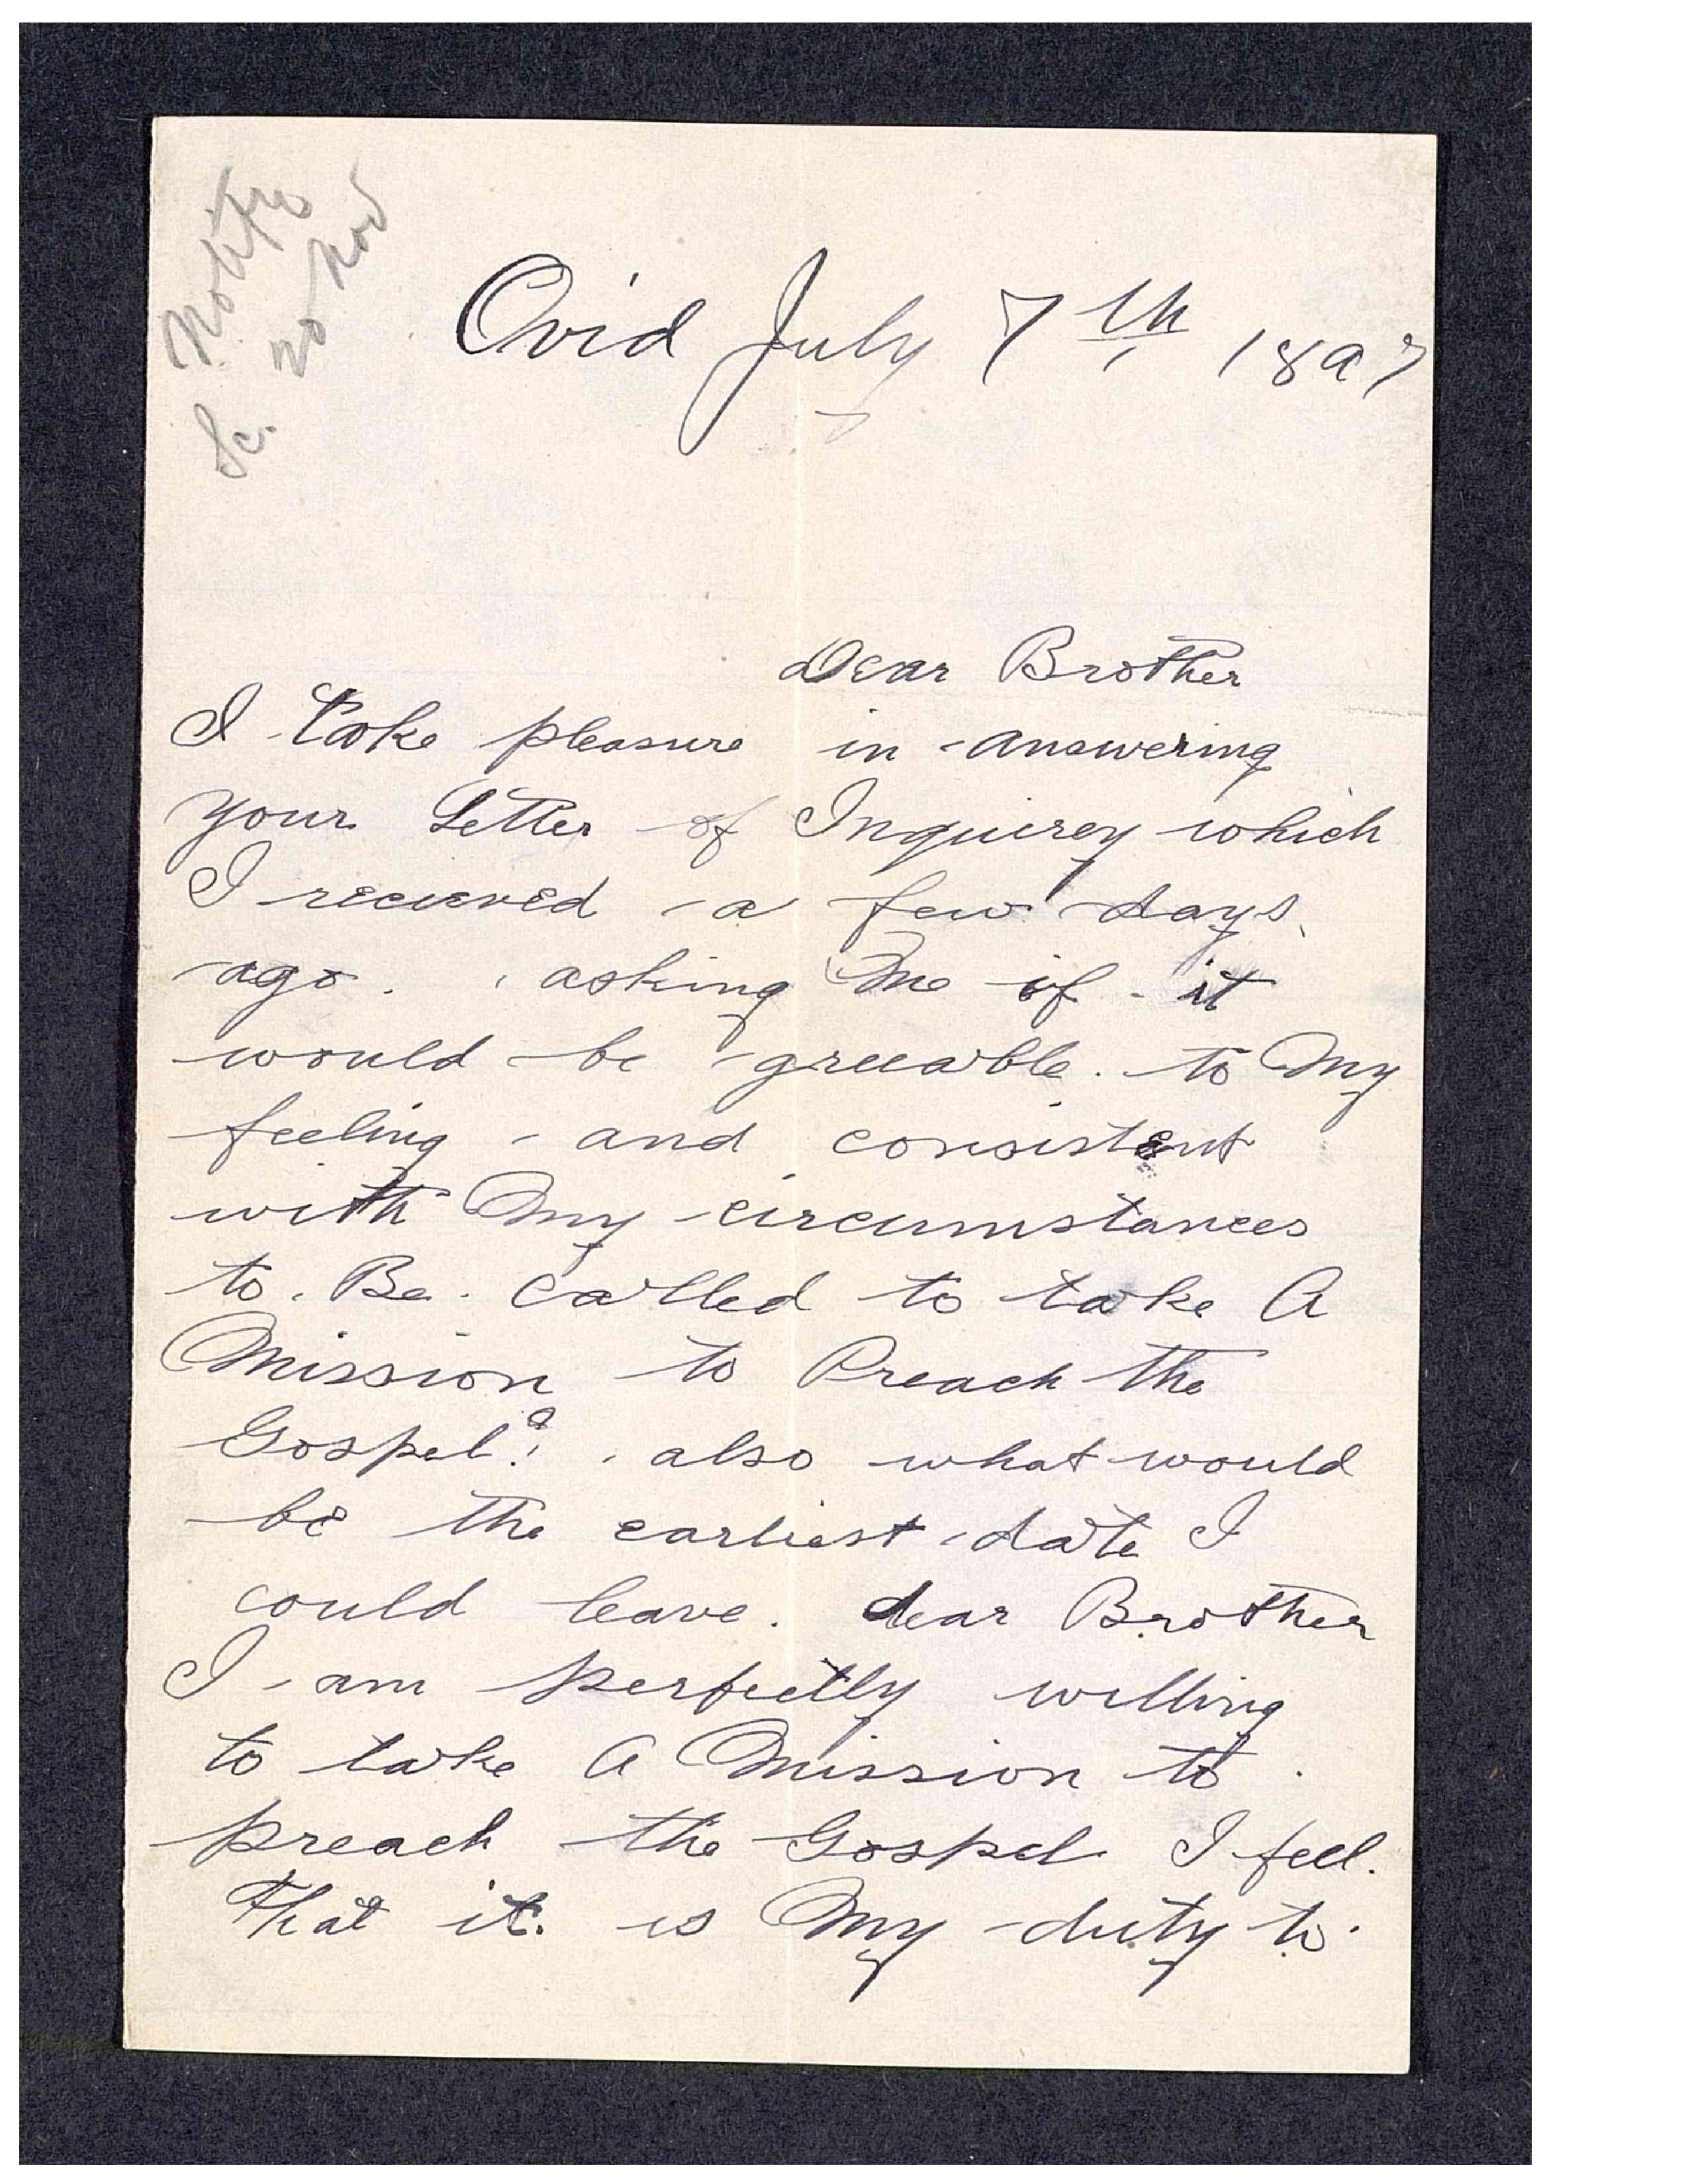 20 Nov
Ovid July 7th 1897
Dear Brother
I take pleasure in answering
your Letter of Inquirey which
I recieved a few days
ago. asking Me if it
would be greeable. to My
feeling and consistent
with My circumstances
to. Be. called to take A
Mission to Preach the
Gospel? also what would
be the earliest date I
could leave. dear Brother
I am perfectly willing
to take A Mission to
preach the Gospel I feel.
That it. is My duty to